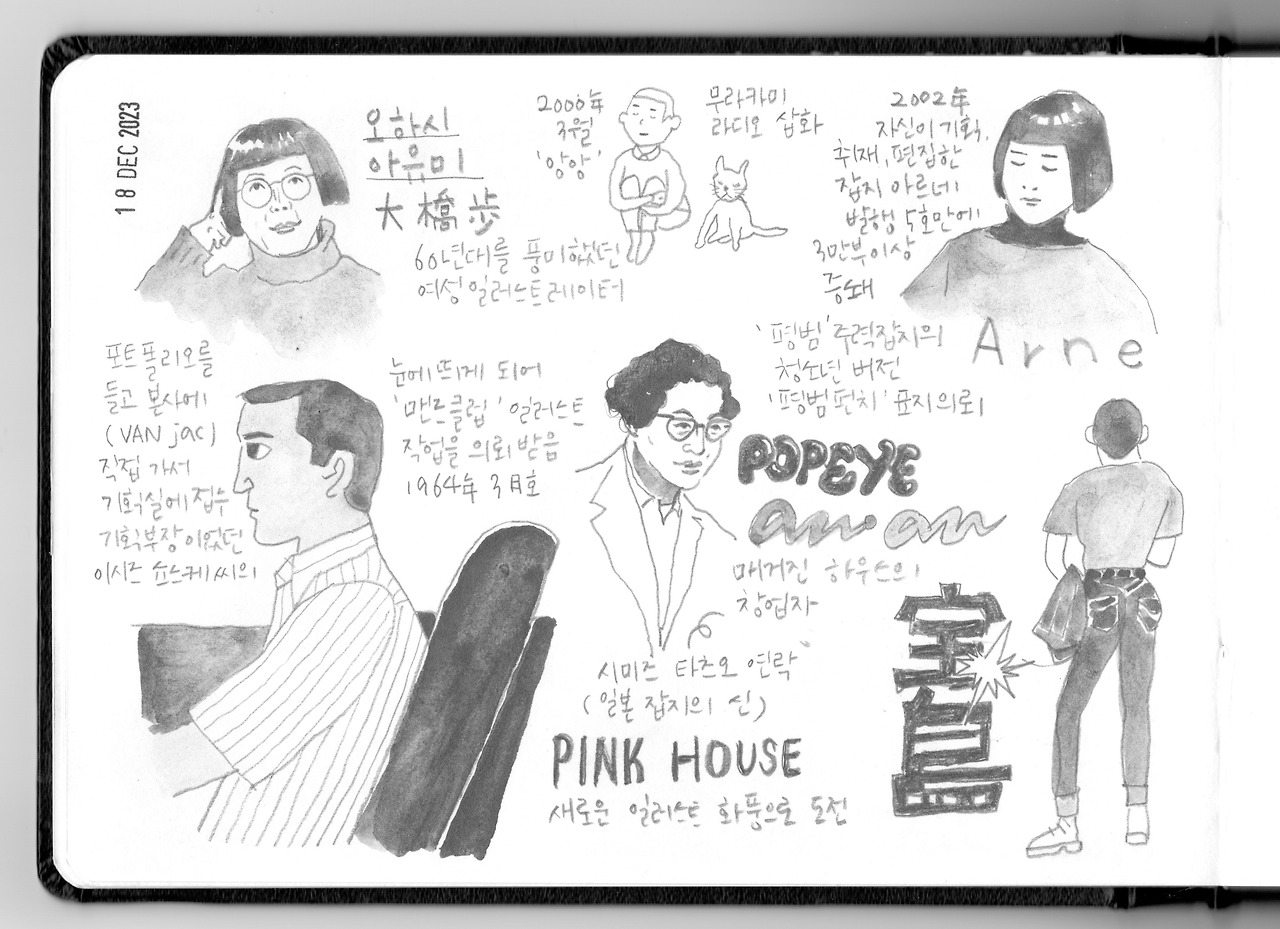 18 DEC 2023
오하시
아유미
大橋歩
60년대를 풍미했던
여성 일러스트레이터
2000年
3월
'앙앙'
무라카미
라디오 삽화
2002年
자신이 기획,
취재, 편집한
잡지 아르네
발행 5호만에
3만부 이상
증쇄
Arne
포트폴리오를
들고 본사에
(VAN jac)
직접 가서
기획실에 접수
기획부장이었던
이시즈 쇼스케씨의
눈에 띄게 되어
'맨즈클럽' 일러스트
작업을 의뢰 받음
1964年 3月호
'평범' 주력잡지의
청소년 버전
'평범펀치' 표지 의뢰
POPEYE
an·an
매거진 하우스의
창업자
시미즈 타츠오 연락
(일본 잡지의 신)
PINK HOUSE
새로운 일러스트 화풍으로 도전
宝島